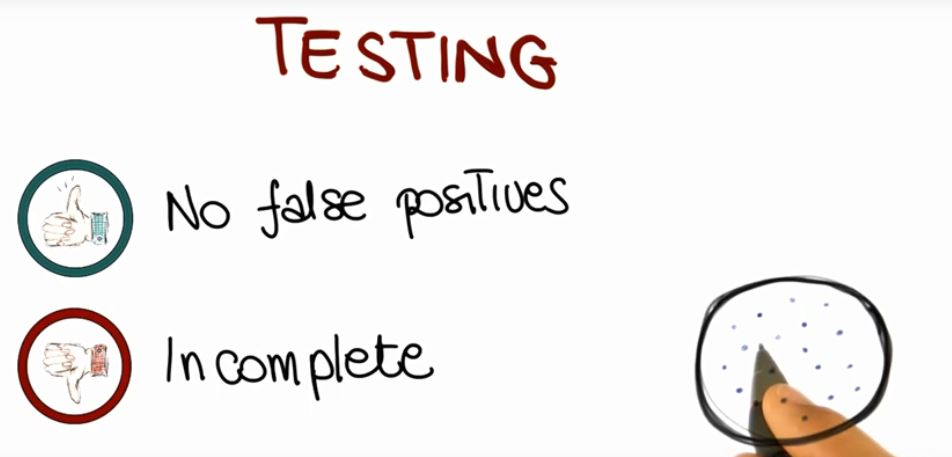 TESTING
No false positives
Incomplete